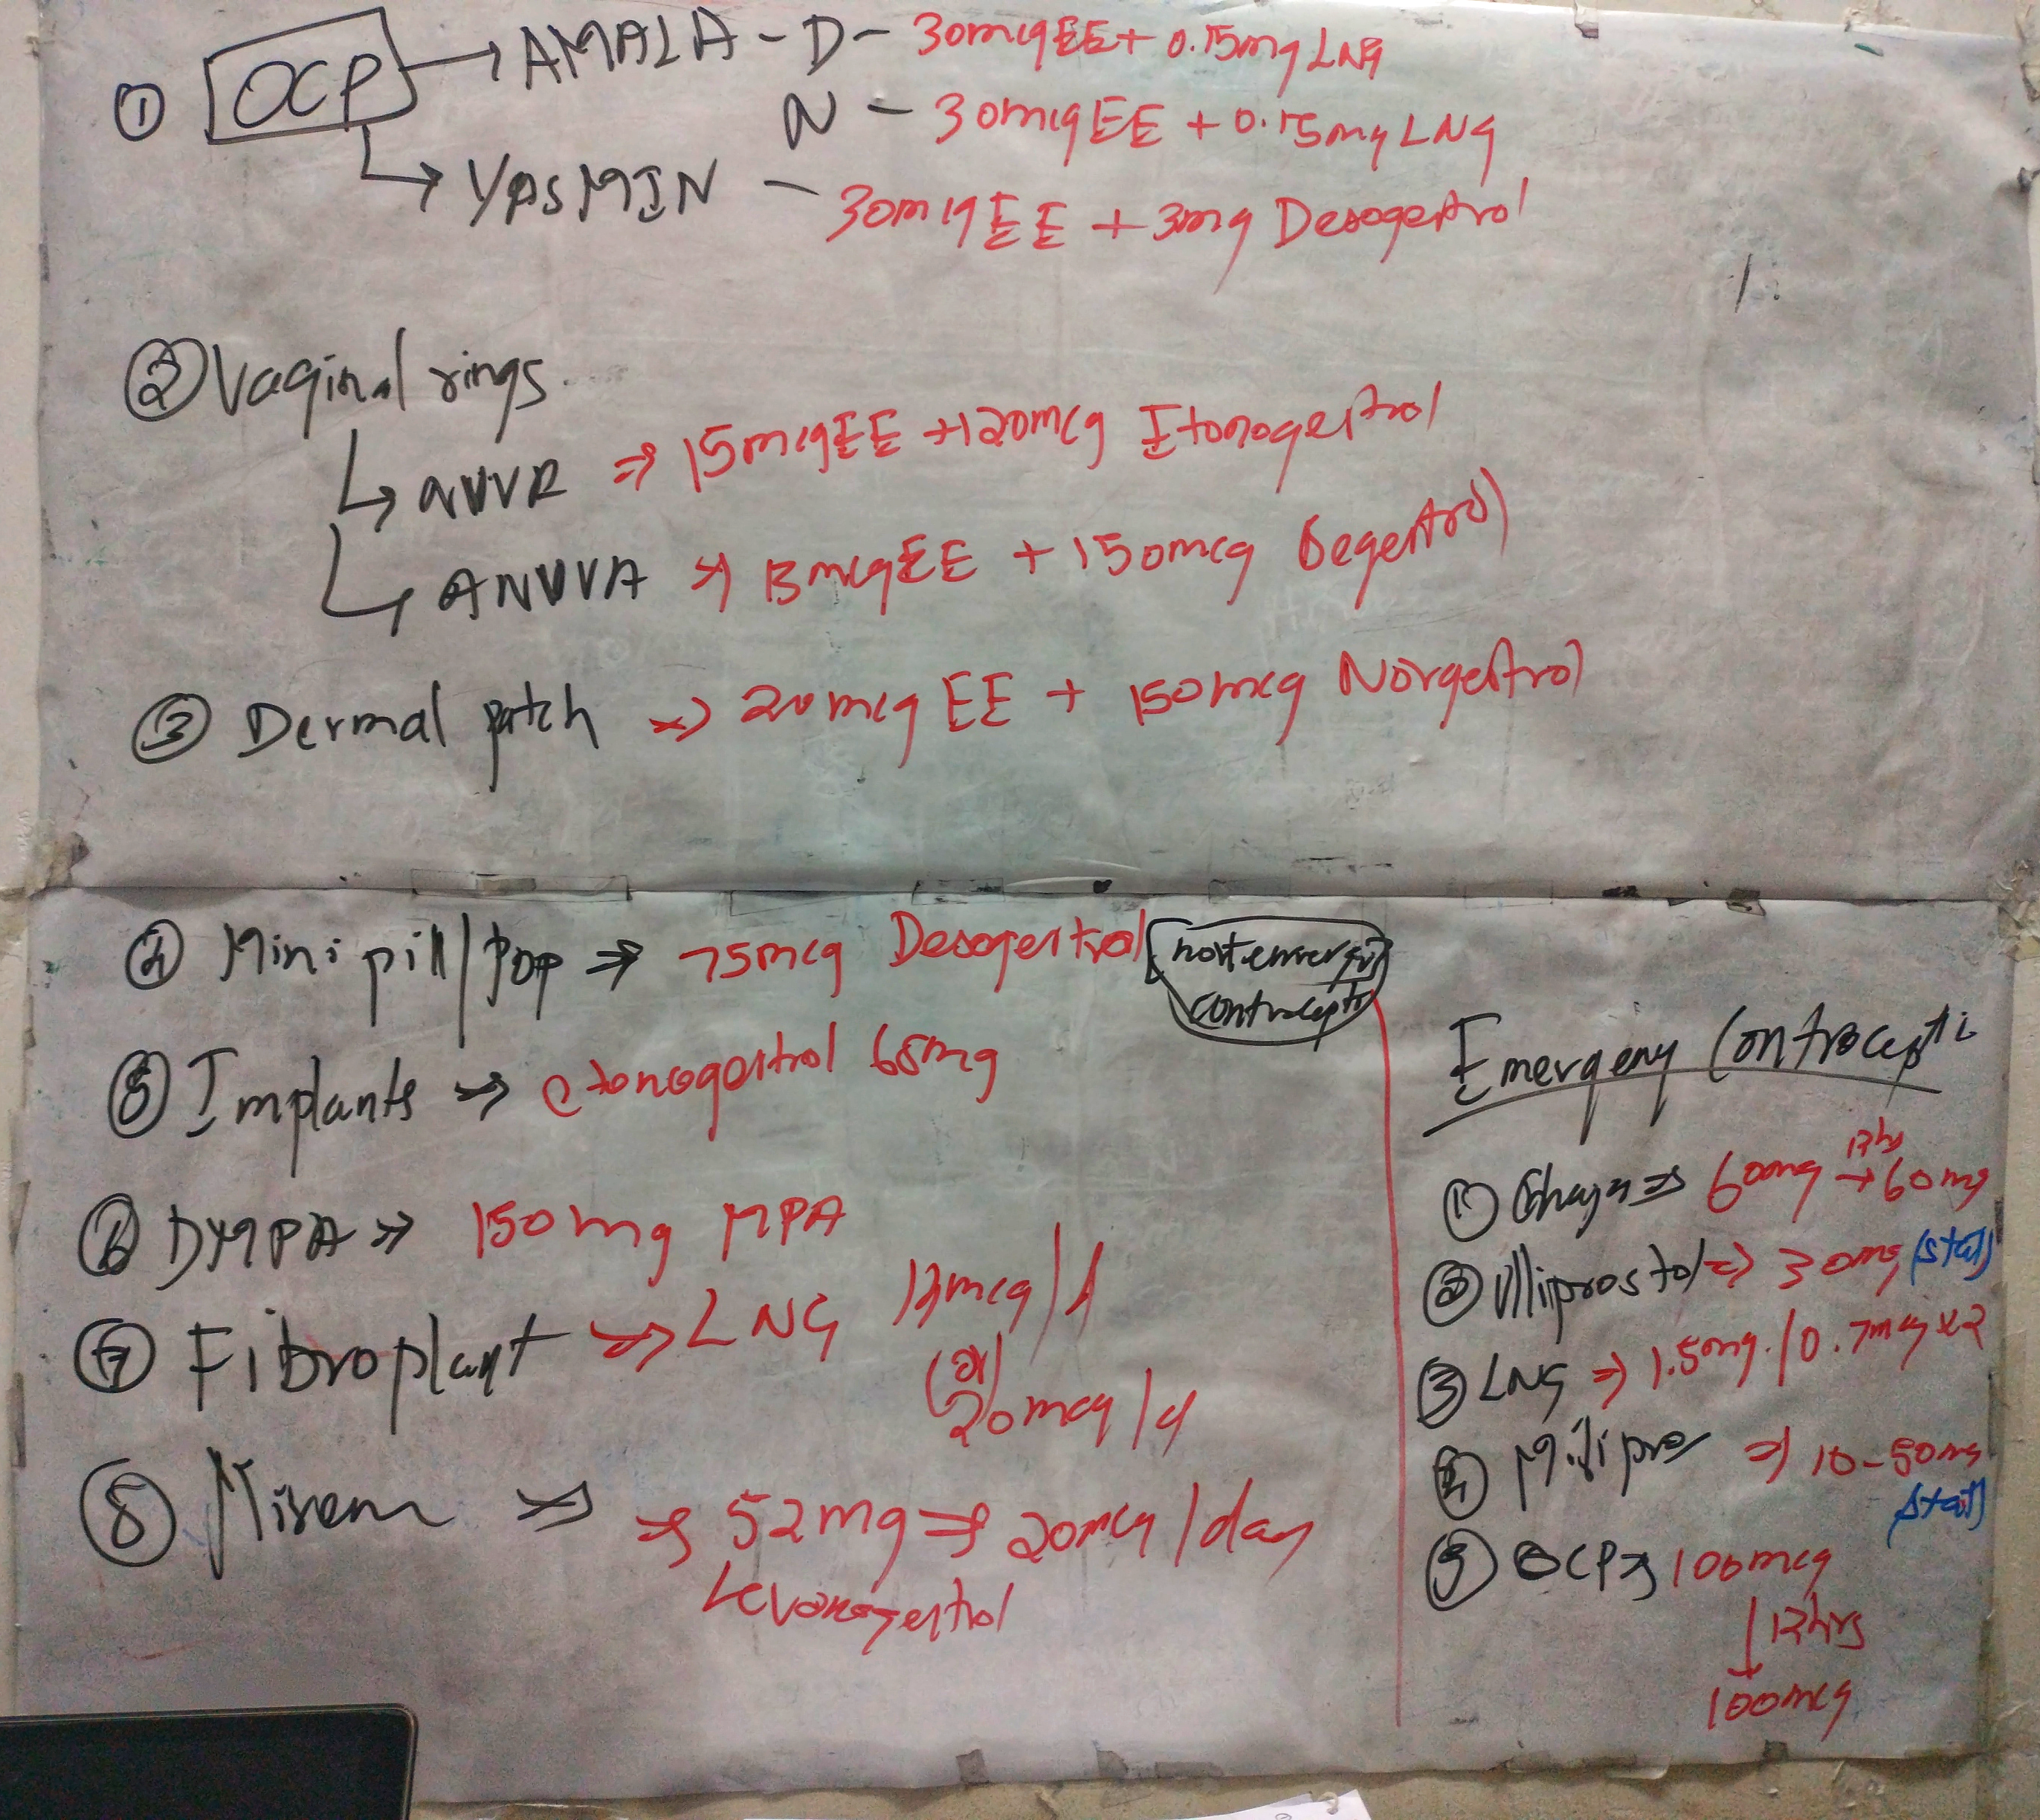 ① OCP → AMALA - D - 30mcgEE + 0.15mg LNG
N - 30mcgEE + 0.15mg LNG
→ YASMIN - 30mcgEE + 3mg Desogestrol
② Vaginal rings
↳ NUVR ⇒ 15mcgEE + 120mcg Etonogestrol
↳ ANUVVA ⇒ 15mcgEE + 150mcg
③ Dermal patch ⇒ 20mcg EE + 150mcg Norgestrol
④ Mini pill/pop ⇒ 75mcg Desogestrol
⑤ Implants ⇒ etonogestrol 68mg
⑥ DMPA ⇒ 150mg MPA
⑦ Fibroplant ⇒ LNG /d
(or)
20mcg/d
⑧ Mirena ⇒ ⇒ 52mg ⇒ 20mcg/day
Levonogestrol
Emergeny Contracepti
① ⇒ 60mg 12hrs → 60mg
② Ulliprostol ⇒ 30mg (stat)
③ LNG ⇒ 1.5mg / 0.7mg x2
④ ⇒ 10-50mg
(stat)
⑤ OCP ⇒ 100mcg
↓ 12hrs
100mcg